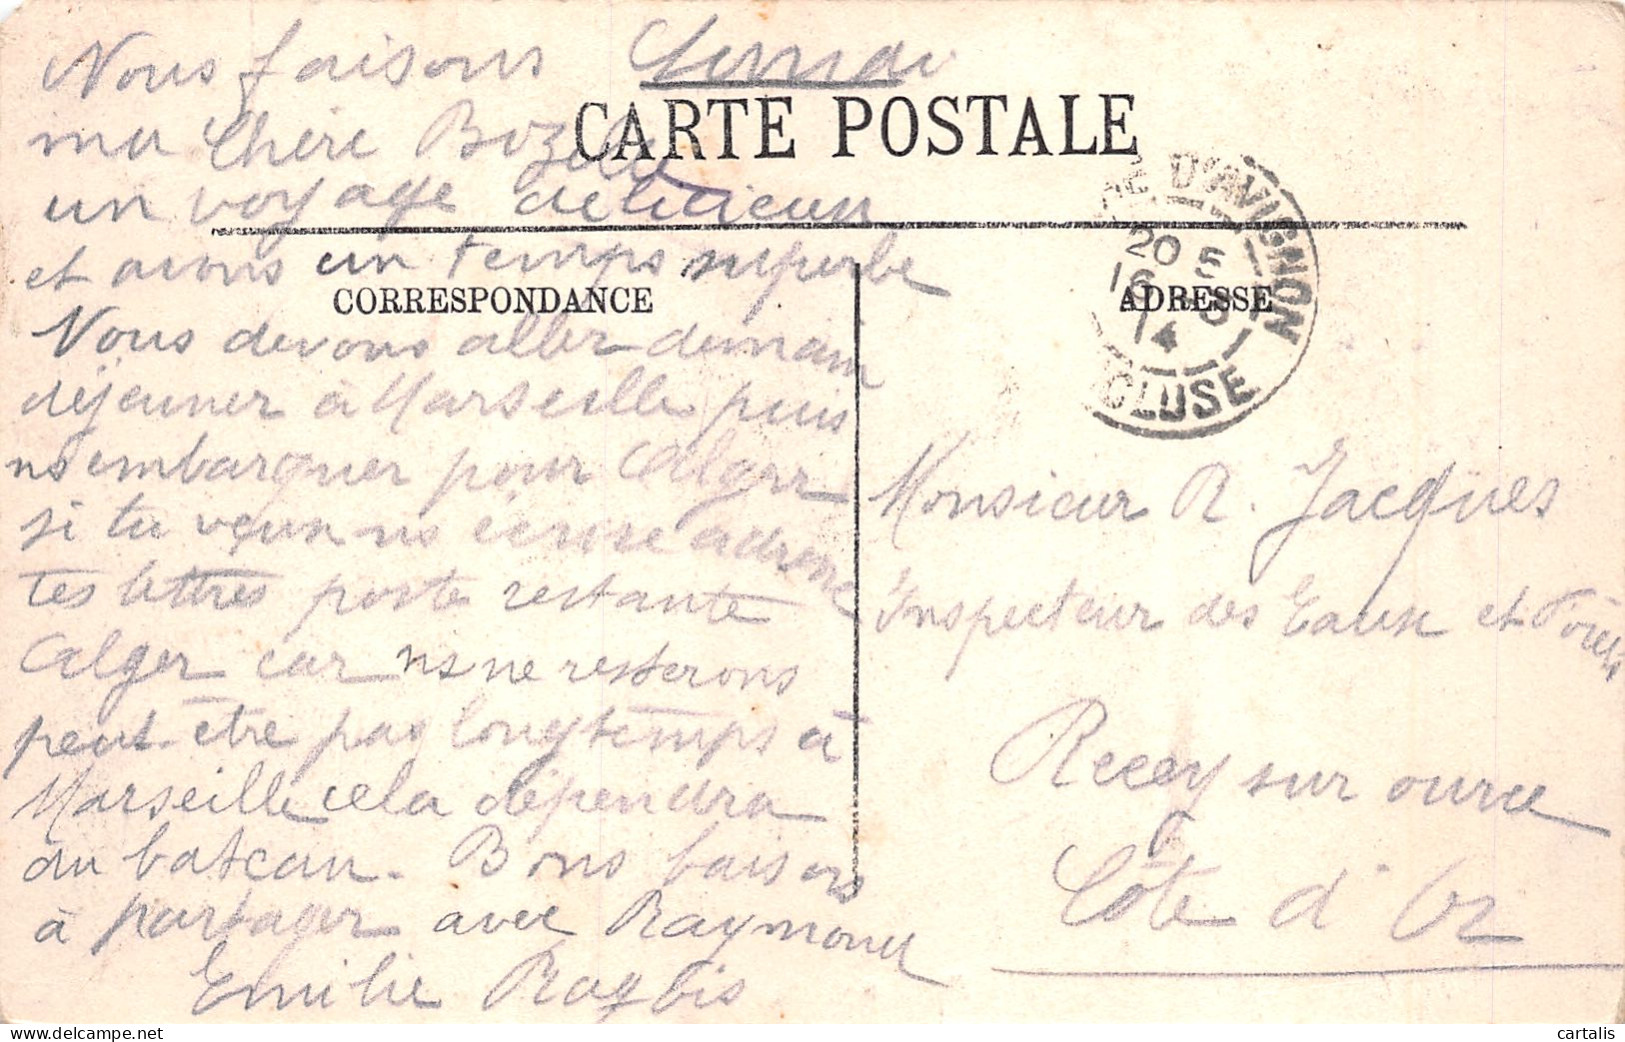 Nous faisons Lundi
CARTE POSTALE
ma Chère
un voyage délicieux
et avons un temps superbe
CORRESPONDANCE
Nous devons aller demain
déjeuner à Marseille puis
ns embarquer pour Alger
si tu veux ns écrire adresse
tes lettres poste restante
Alger car ns ne resterons
peut-être pas longtemps à
Marseille cela dépendra
du bateau. Bons baisers
à partager avec Raymond
Emilie
D'AVIGNON
20 5
16
14
CLUSE
ADRESSE
Monsieur R. Jacques
Inspecteur des Eaux et Forêts
Recey sur ource
Côte d'Or
cartalis